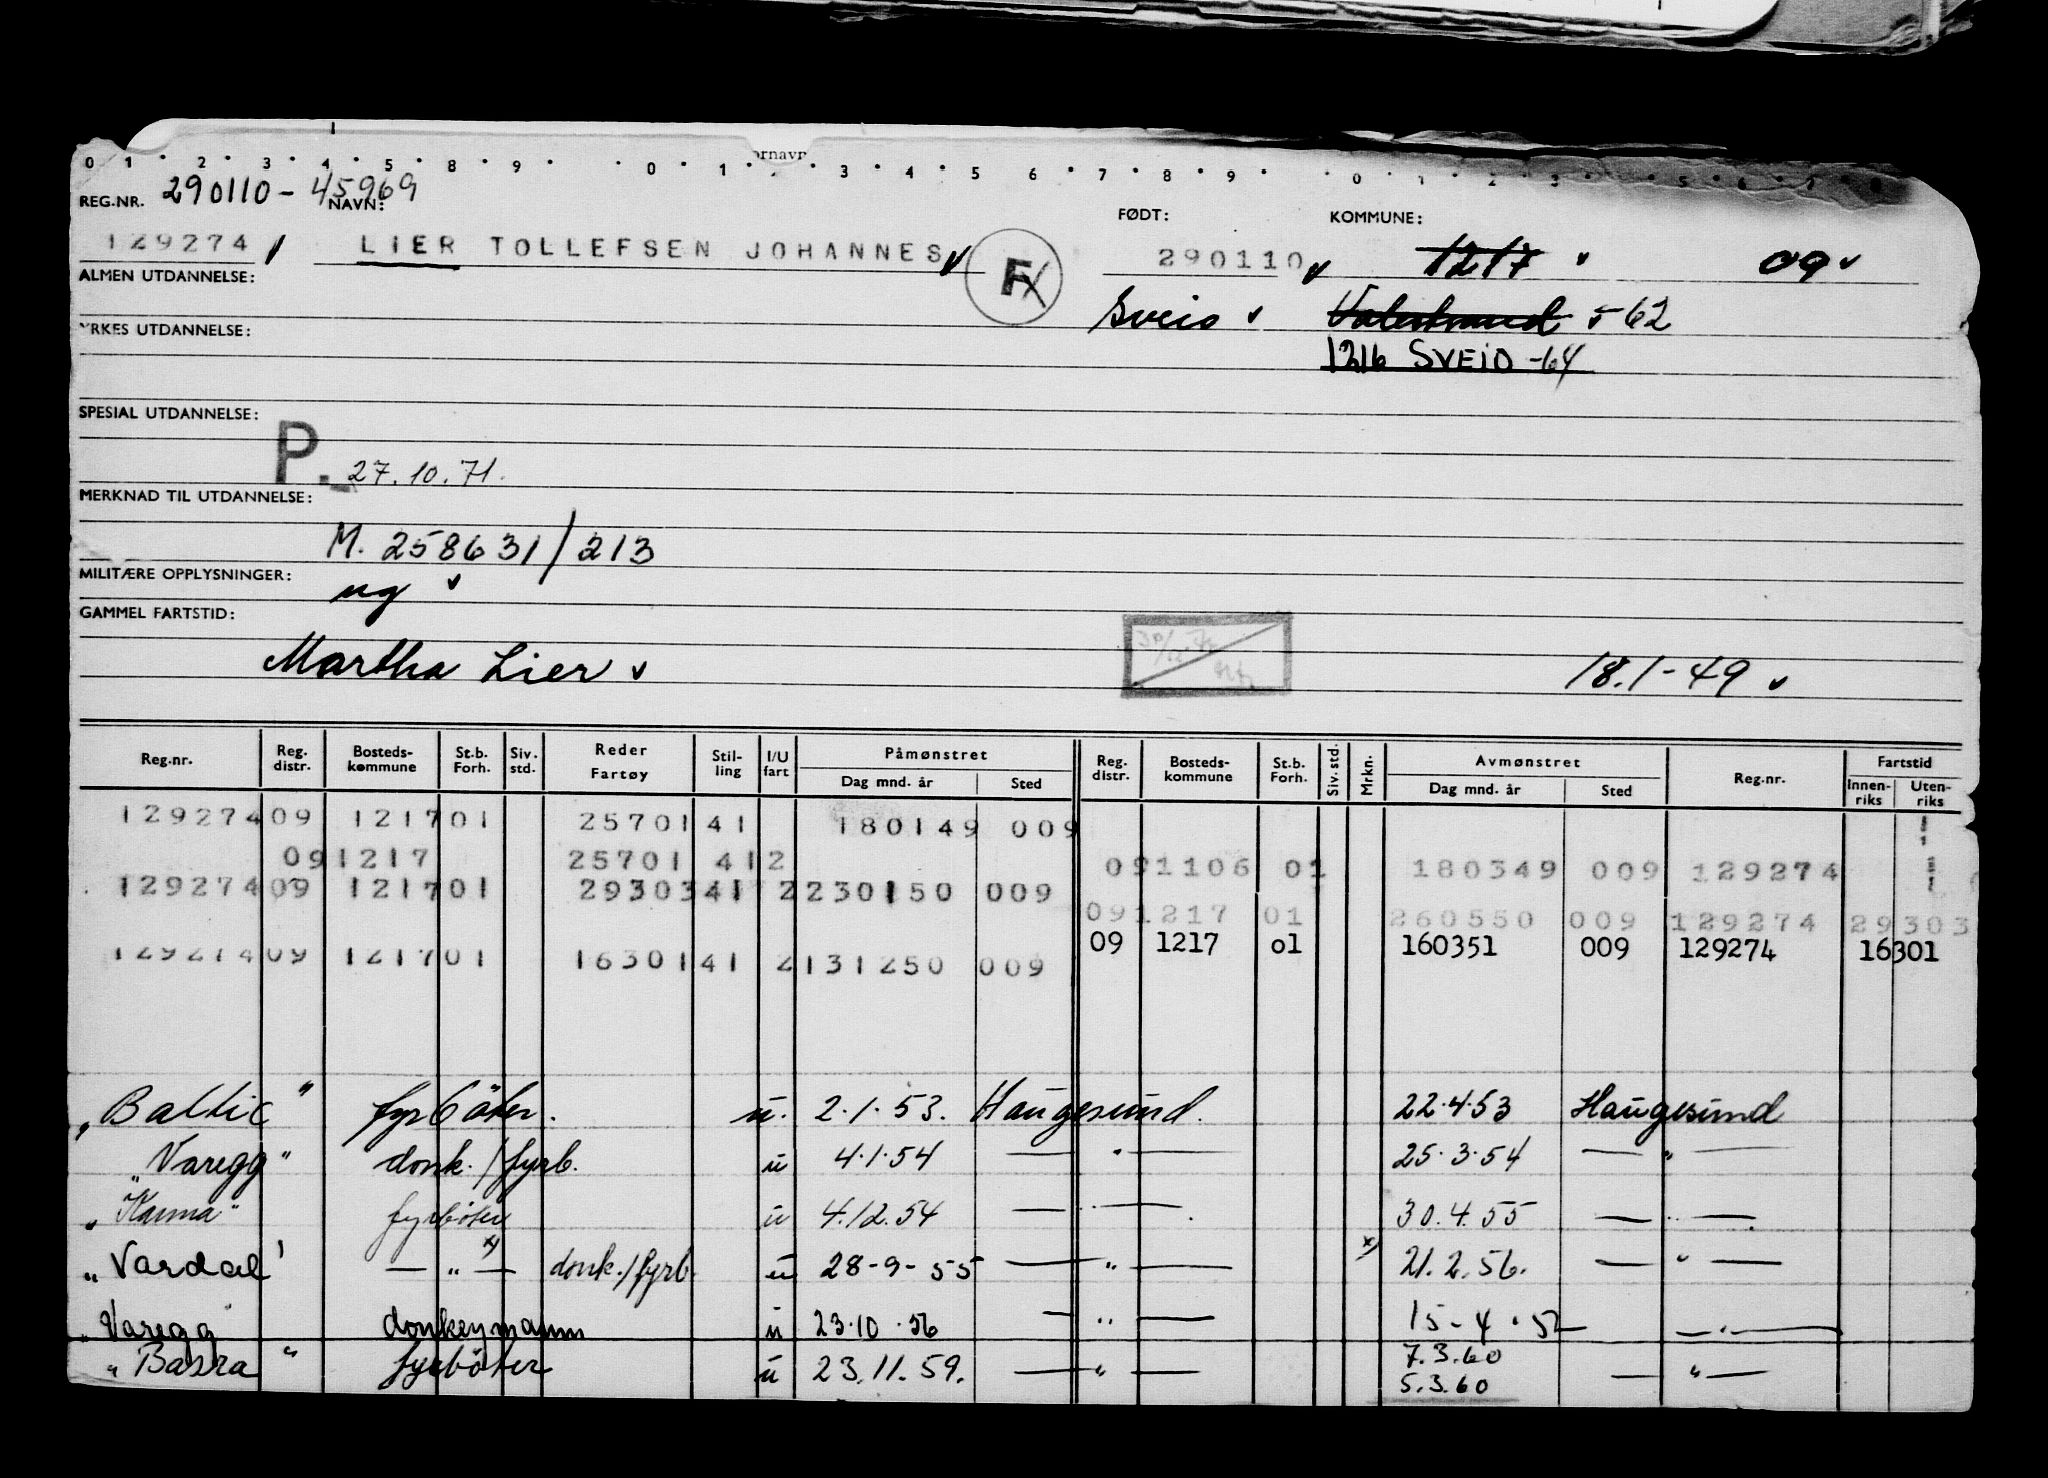 ornavn
0 1 2 3 4 5 8 9 0 1 3 4 5 6 7 8 9 0 1 2 3 5 6 7 8
REG.NR. 290110-45969 NAVN: FØDT: KOMMUNE:
129274 LIER TOLLEFSEN JOHANNES F 290110 1217 09
ALMEN UTDANNELSE:
Sveio Valestrand 5 62
YRKES UTDANNELSE:
1216 SVEIO -64
SPESIAL UTDANNELSE:
P. 27.10.71.
MERKNAD TIL UTDANNELSE:
M. 258631/213
MILITÆRE OPPLYSNINGER:
ug
GAMMEL FARTSTID:
Martha Lier 18.1-49
Reg.nr. Reg. distr. Bosteds- kommune St.b. Forh. Siv. std. Reder Fartøy Stil- ling I/U fart Påmønstret Dag mnd. år Sted Reg. distr. Bosteds- kommune St.b. Forh. Siv. std. Mrkn. Avmønstret Dag mnd. år Sted Reg.nr. Fartstid Innen- riks Uten- riks
129274 09 1217 01 25701 41 180149 009
09 1217 25701 41 2 09 1106 01 180349 009 129274
129274 09 1217 01 29303 41 2 230150 009
09 1217 01 260550 009 129274 29303
09 1217 01 160351 009 129274 16301
129274 09 1217 01 16301 41 2 131250 009
"Baltic" fyrböter. u. 2.1.53. Haugesund. 22.4.53 Haugesund
"Varegg" donk./fyrb. u 4.1.54 — " — 25.3.54 — " —
"Karma" fyrböter u 4.12.54 — " — 30.4.55 — " —
"Vardal" — " — x) donk./fyrb. u 28-9-55 — " — x) 21.2.56. — " —
"Varegg donkeymann u 23.10.56 — " — 15-4.57 — " —
"Basra" fyrböter u 23.11.59. — " — 7.3.60 — " —
5.3.60